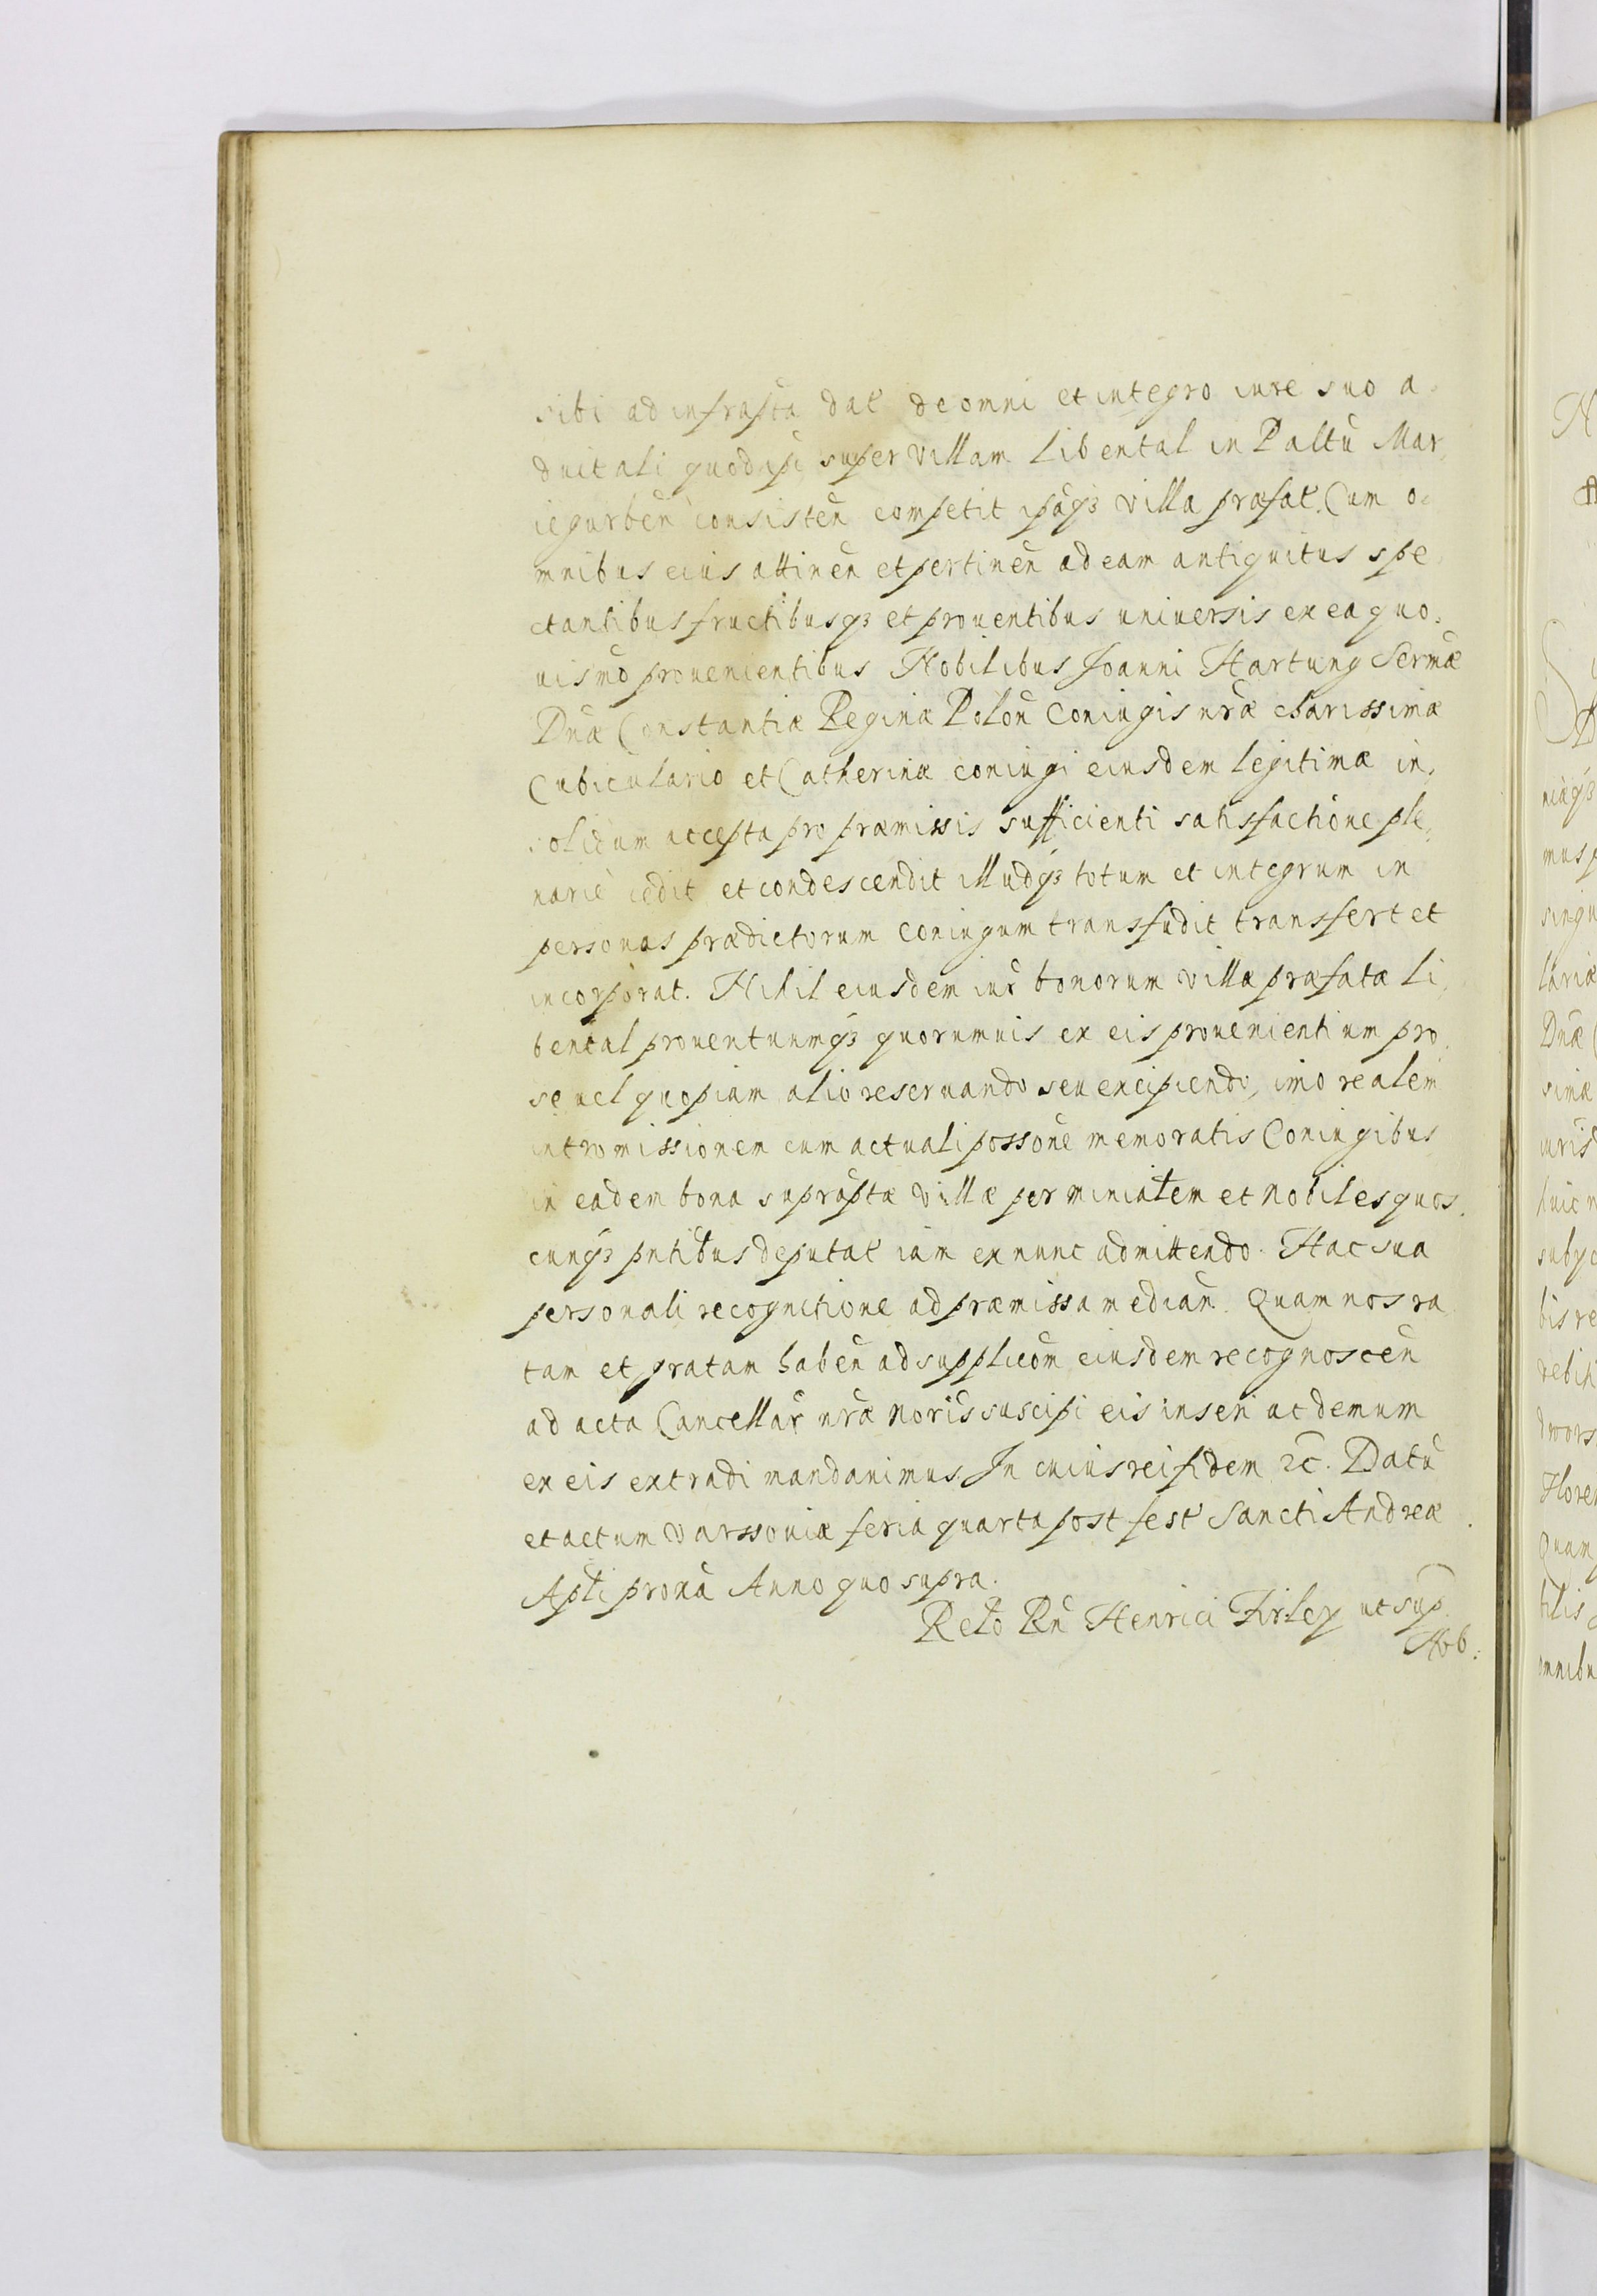 sibi ad infrascta dat de omni et integro iure suo a
dvitali quod ipi super villam Libental in Paltu Mar
iegurben consisten competit ipaqz villa præfat. Cum o
mnibus eius attinen et pertinen ad eam antiquitus spe
ctantibus fructibusqz et prouentibus uniuersis ex ea quo
uismo prouenientibus Nobilibus Joanni Hartung Sermæ
Dnæ Constantiæ Reginæ Polon Coniugis nræ charissimæ
Cubiculario et Catherinæ coniugi eiusdem legitimæ in
solidum accepta pro præmissis sufficienti satisfactione ple
narie cedit et condescendit illudqz totum et integrum in
personas prædictorum coniugum transfudit transfert et
incorporat. Nihil eiusdem iur bonorum villæ præfatæ Li
bental prouentuumqz quorumuis ex eis prouenientium pro
se uel quopiam alio reseruando seu excipiendo, imo realem
intromissionem cum actuali possone memoratis Coniugibus
in eadem bona suprascptæ villæ per ministem et nobiles quos
cunqz pntibus deputat iam ex nunc admittendo. Hac sua
personali recognitione ad præmissa median. Quam nos ra
tam et gratam haben ad supplicom eiusdem recognoscen
ad acta Cancellar nræ noris suscipi eis inseri ac demum
ex eis extradi mandauimus. In cuius rei fidem 2c. Datu
et actum Varssouiæ feria quarta post fest Sancti Andreæ
Apli proxa Anno quo supra.
Relo Rn Henrici Firley ut sup.